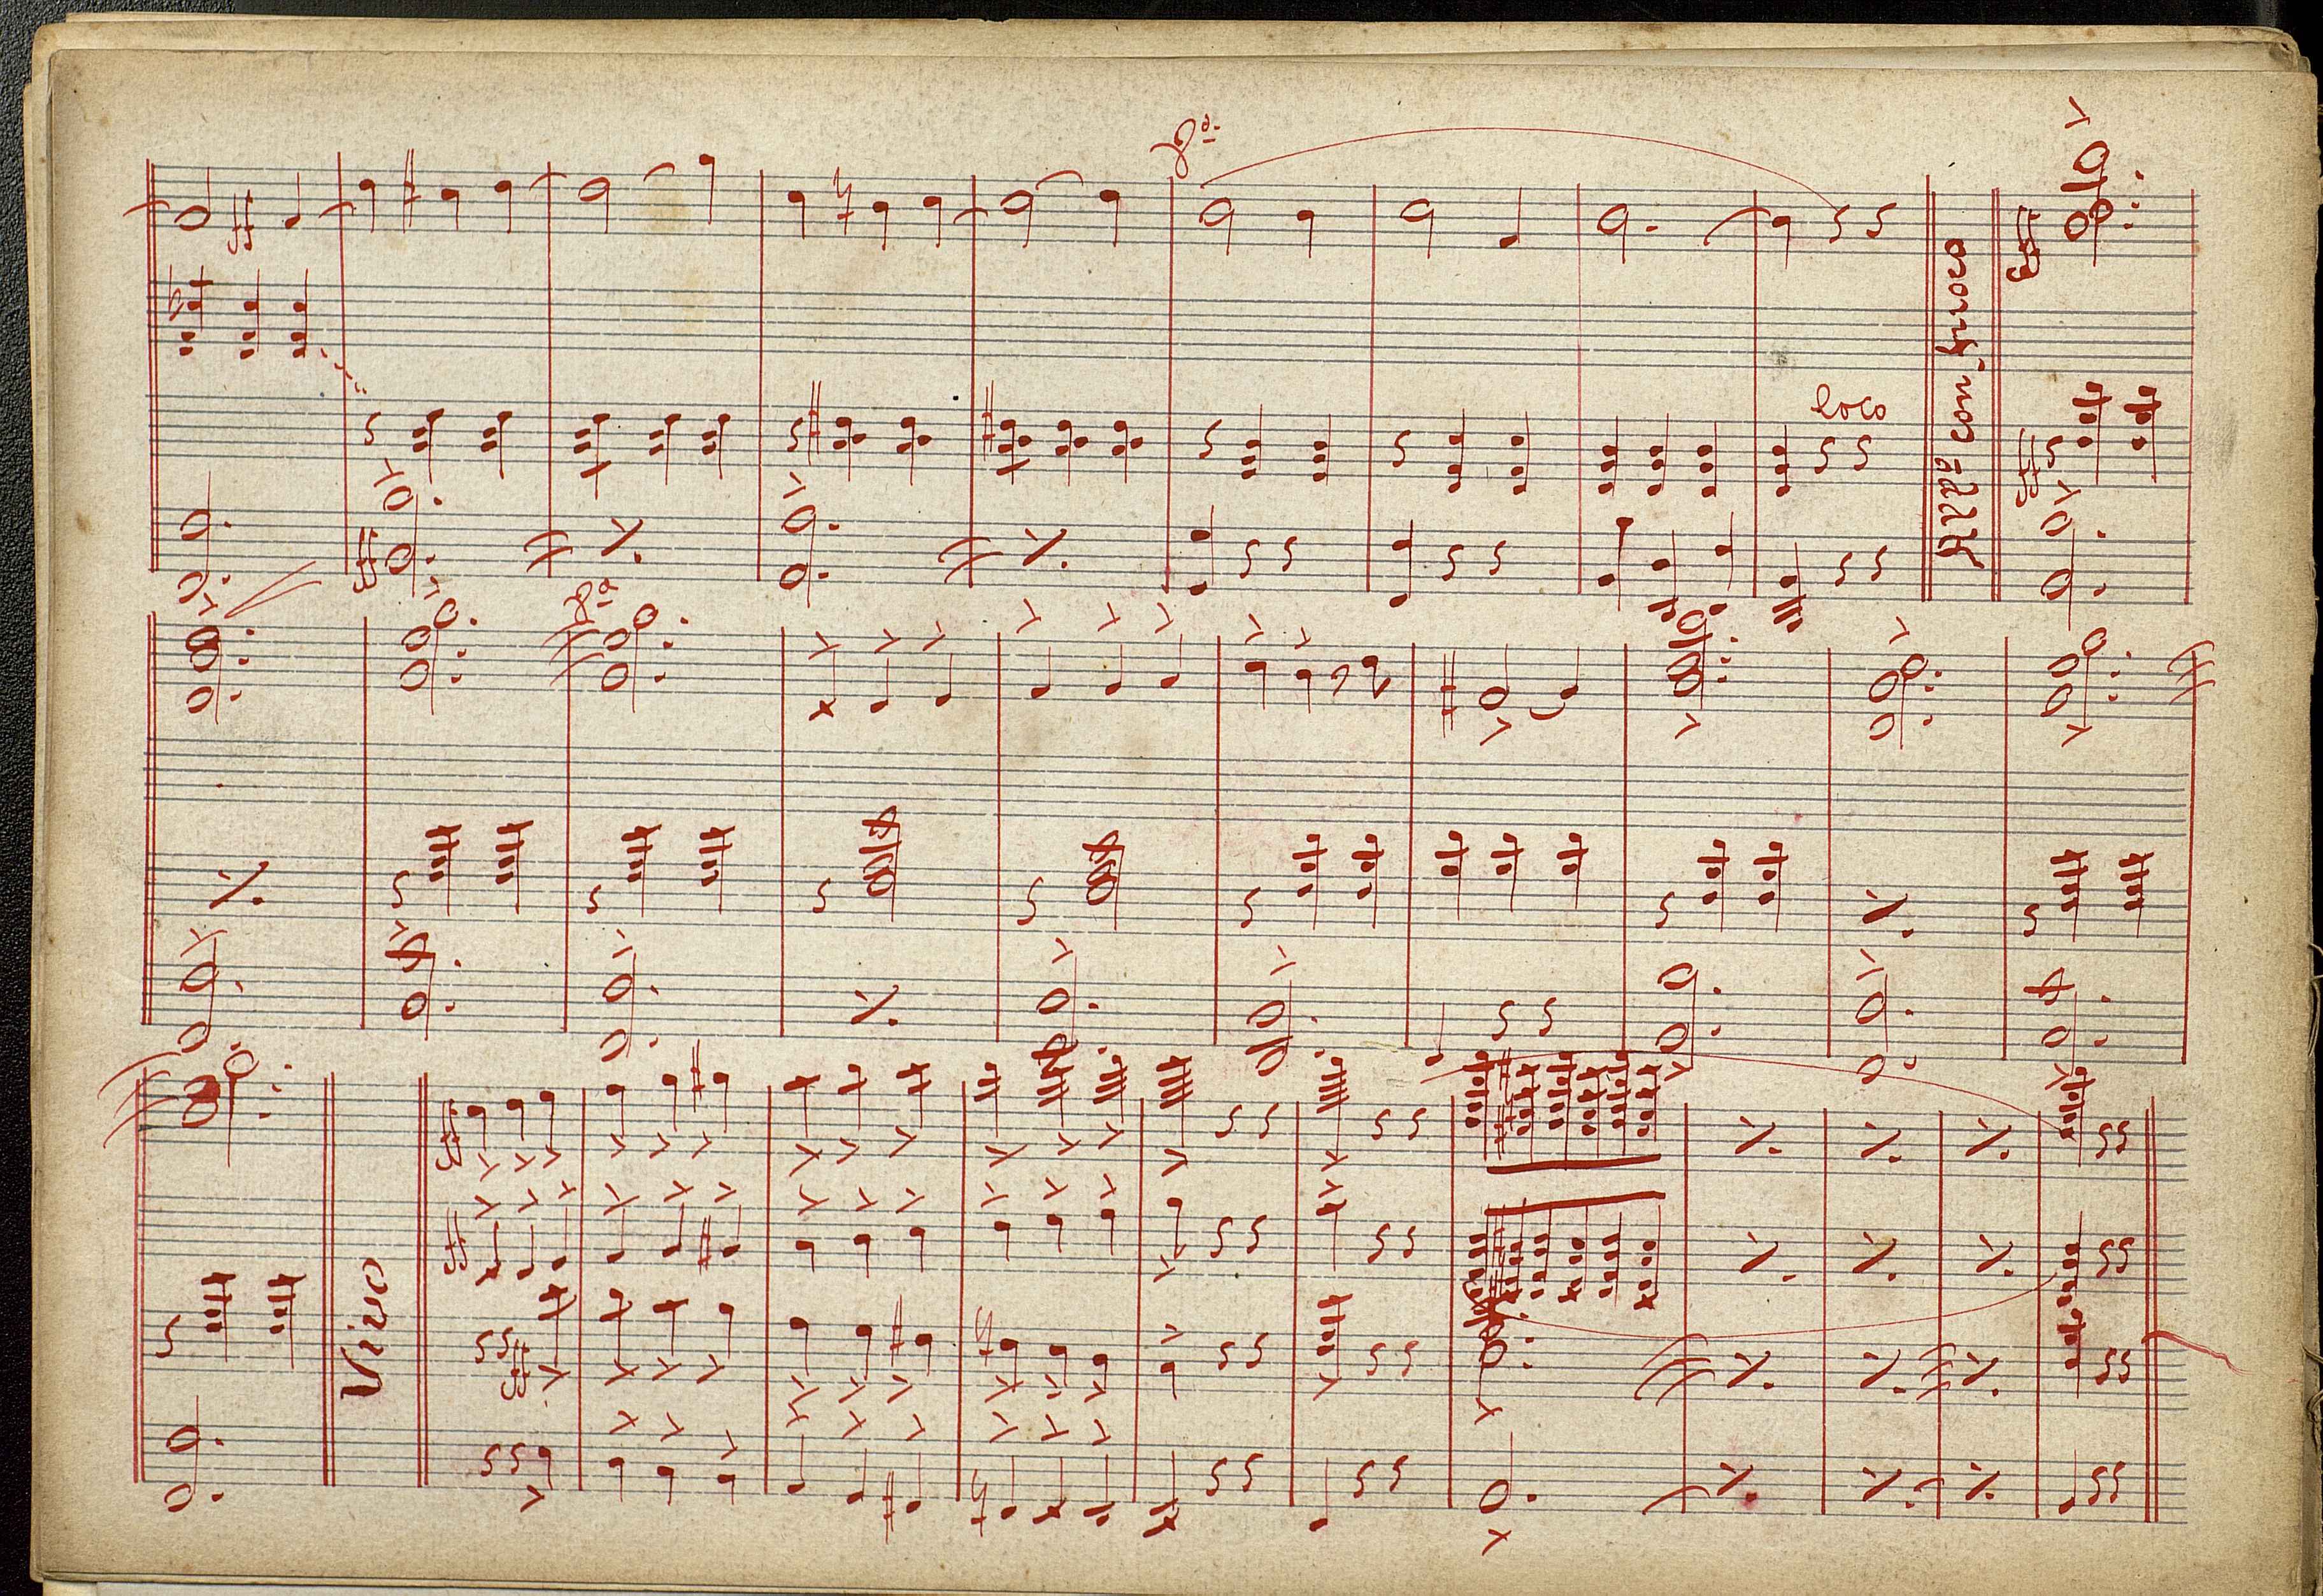 8ª
loco
Allº con fuoco
8ª
Vivo